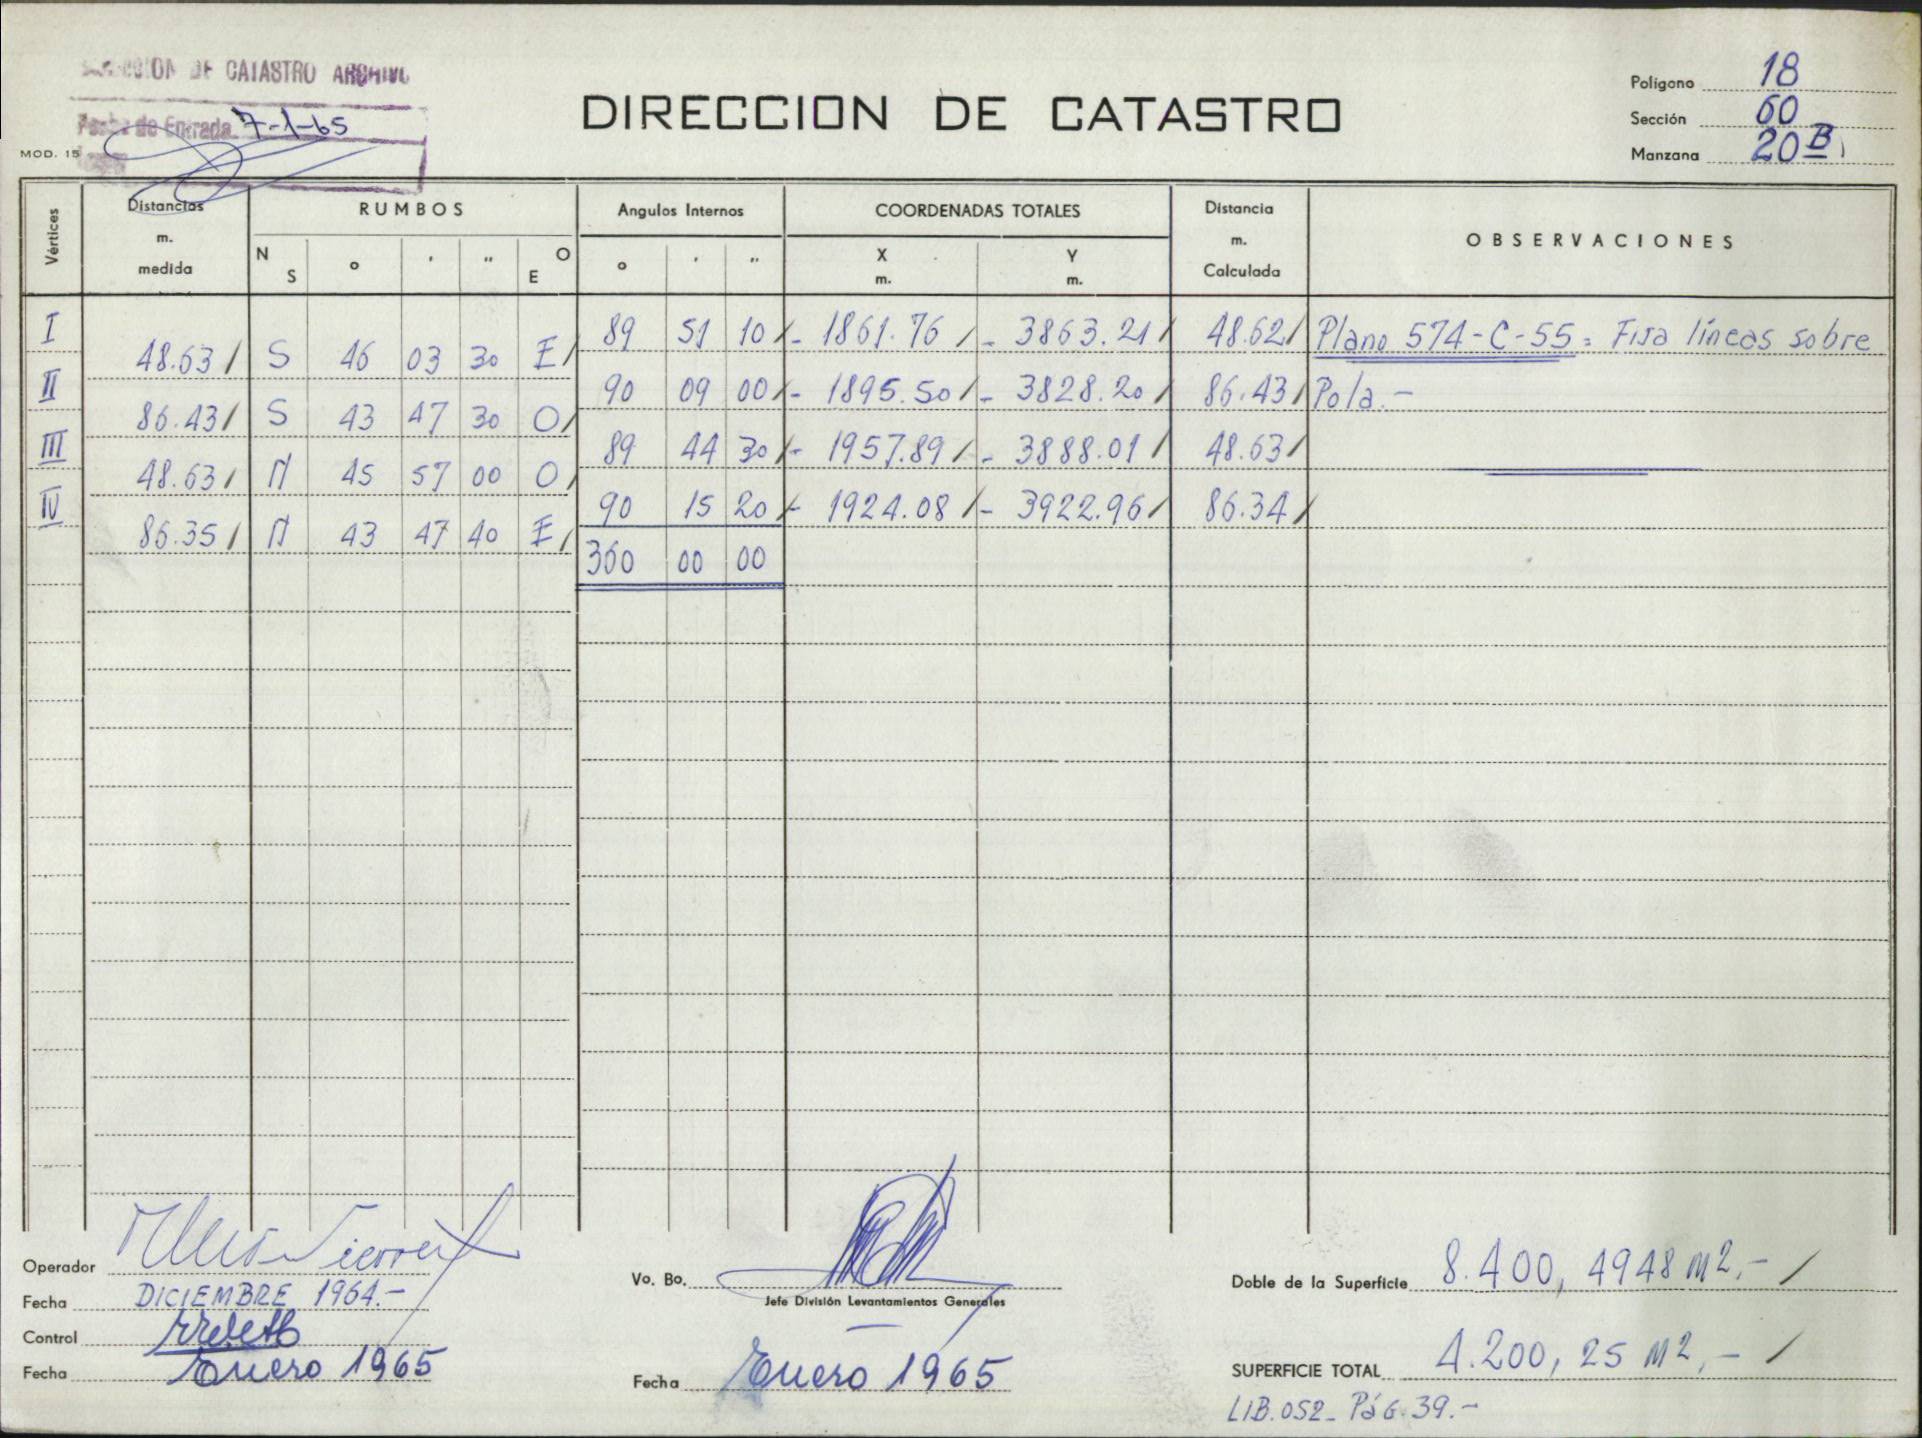 DIRECCION DE CATASTRO ARCHIVO
Fecha de Entrada 7-1-65
MOD. 15
DIRECCION DE CATASTRO
Polígono 18
Sección 60
Manzana 20 B
Vértices
Distancias m. medida
RUMBOS
N S ° ' " O E
Angulos Internos
° ' "
COORDENADAS TOTALES
X m. Y m.
Distancia m. Calculada
OBSERVACIONES
I 89 51 10 / - 1861.76 / - 3863.21 / 48.62 / Plano 574-C-55 = Fija líneas sobre
48.63 / S 46 03 30 E /
II 90 09 00 / - 1895.50 / - 3828.20 / 86.43 / Pola.-
86.43 / S 43 47 30 O /
III 89 44 30 / - 1957.89 / - 3888.01 / 48.63 /
48.63 / N 45 57 00 O /
IV 90 15 20 / - 1924.08 / - 3922.96 / 86.34 /
86.35 / N 43 47 40 E /
360 00 00
Operador
Fecha DICIEMBRE 1964.-
Control
Fecha Enero 1965
Vo. Bo.
Jefe División Levantamientos Generales
Fecha Enero 1965
Doble de la Superficie 8.400, 4948 M2.- /
SUPERFICIE TOTAL 4.200, 25 M2.- /
LIB. 052_ Pág. 39.-